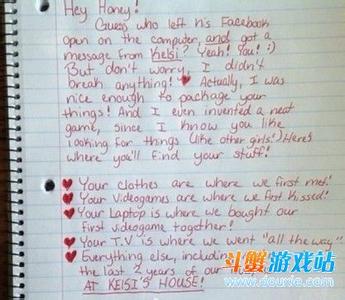 Hey Honey!
Guess who left his Facebook
open on the computer, and got a
message from Kelsi? Yeah! You! :)
But don't worry, I didn't
break anything! ♥ Actually, I was
nice enough to package your
things! And I even invented a neat
game, since I know you like
looking for things (like other girls!) Here's
where you'll find your stuff!
♥ Your clothes are where we first met!
♥ Your Videogames are where we first kissed!
♥ Your Laptop is where we bought our
first videogame together!
♥ Your T.V is where we went "all the way".
♥ Everything else, including
the last 2 years of our
AT KELSI'S HOUSE!
斗蟹游戏站
www.douxie.com